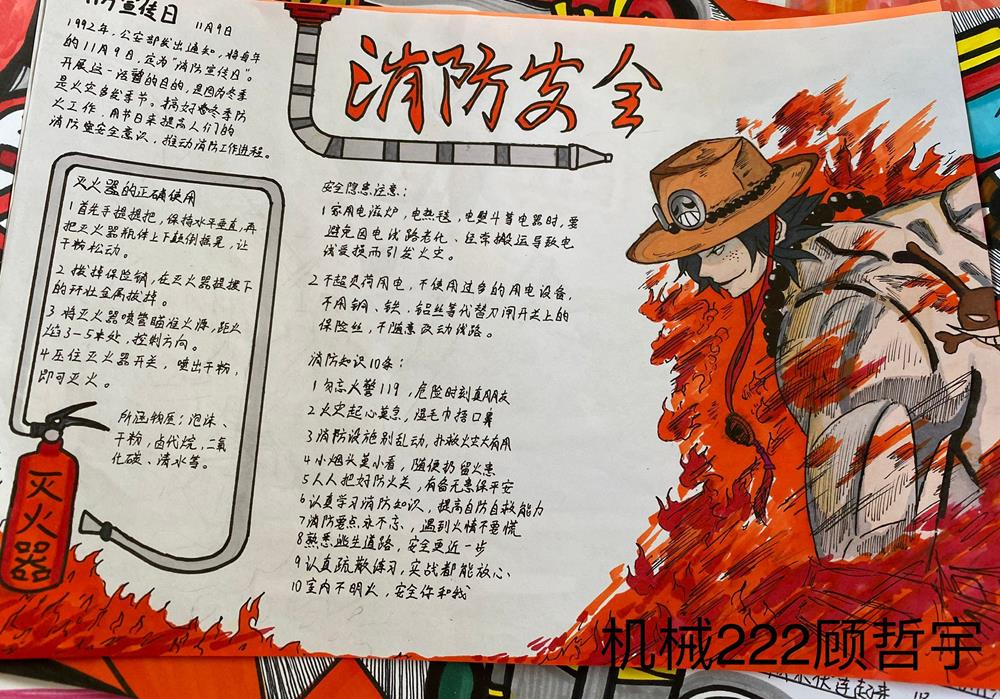 宣传日 11月9日
1992年,公安部发出通知,将每年
的11月9日,定为“消防宣传日”。
开展这一活动的目的,是因为冬季
是火灾多发季节。搞好每冬季防
火工作,用节日来提高人们的
消防安全意识,推动消防工作进程。
消防安全
灭火器的正确使用
1 首先手提提把,保持水平垂直,再
把灭火器瓶体上下颠倒摇晃,让
干粉松动。
2 拔掉保险销,在灭火器提提下
的环壮金属拔掉。
3 将灭火器喷管瞄准火海,距火
焰3-5米处,控制方向。
4 压住灭火器开关,喷出干粉,
即可灭火。
所涵物质:泡沫、
干粉,卤代烷,二氧
化碳、清水等。
灭火器
安全隐患注意:
1 家用电磁炉,电热毯,电熨斗等电器时,要
避免因电线路老化、经常搬运导致电
线受损而引发火灾。
2 不超负荷用电,不使用过多的用电设备,
不用铜、铁、铝丝等代替刀闸开关上的
保险丝,不随意改动线路。
消防知识10条:
1 勿忘火警119,危险时刻真朋友
2 火灾起心莫急,湿毛巾捂口鼻
3 消防设施别乱动,扑救火灾大有用
4 小烟头莫小看,随便扔留火患
5 人人把好防火关,有备无患保平安
6 认真学习消防知识,提高自防自救能力
7 消防要点永不忘,遇到火情不要慌
8 熟悉逃生道路,安全更近一步
9 认真疏散练习,实战都能放心
10 室内不明火,安全你和我
机械222顾哲宇